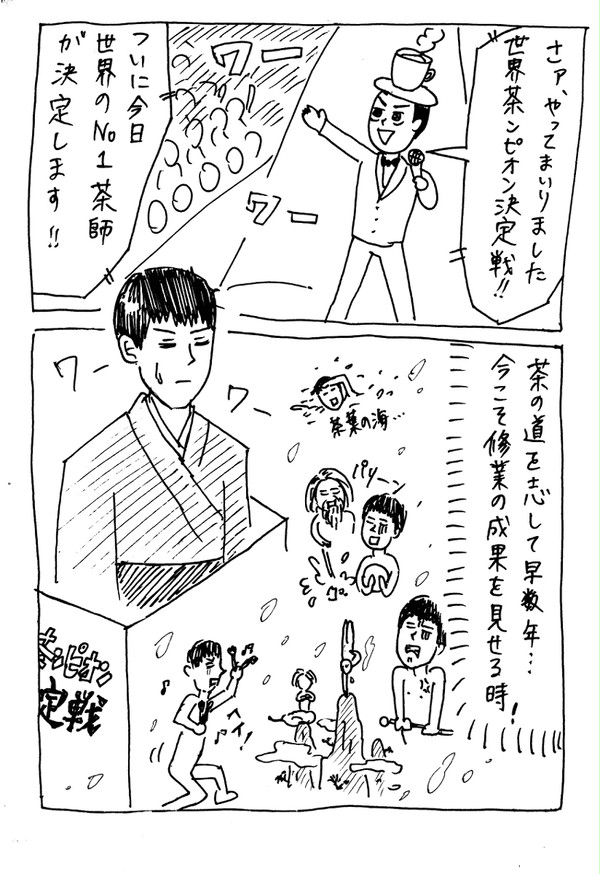 さァ、やってまいりました
世界茶ンピオン決定戦!!
ワー
ワー
ついに今日
世界のNo1茶師
が決定します!!
茶の道を志して早数年…
今こそ修業の成果を見せる時!
ワー
ワー
茶葉の海…
パリーン
ヘイ!
ンピオン
定戦